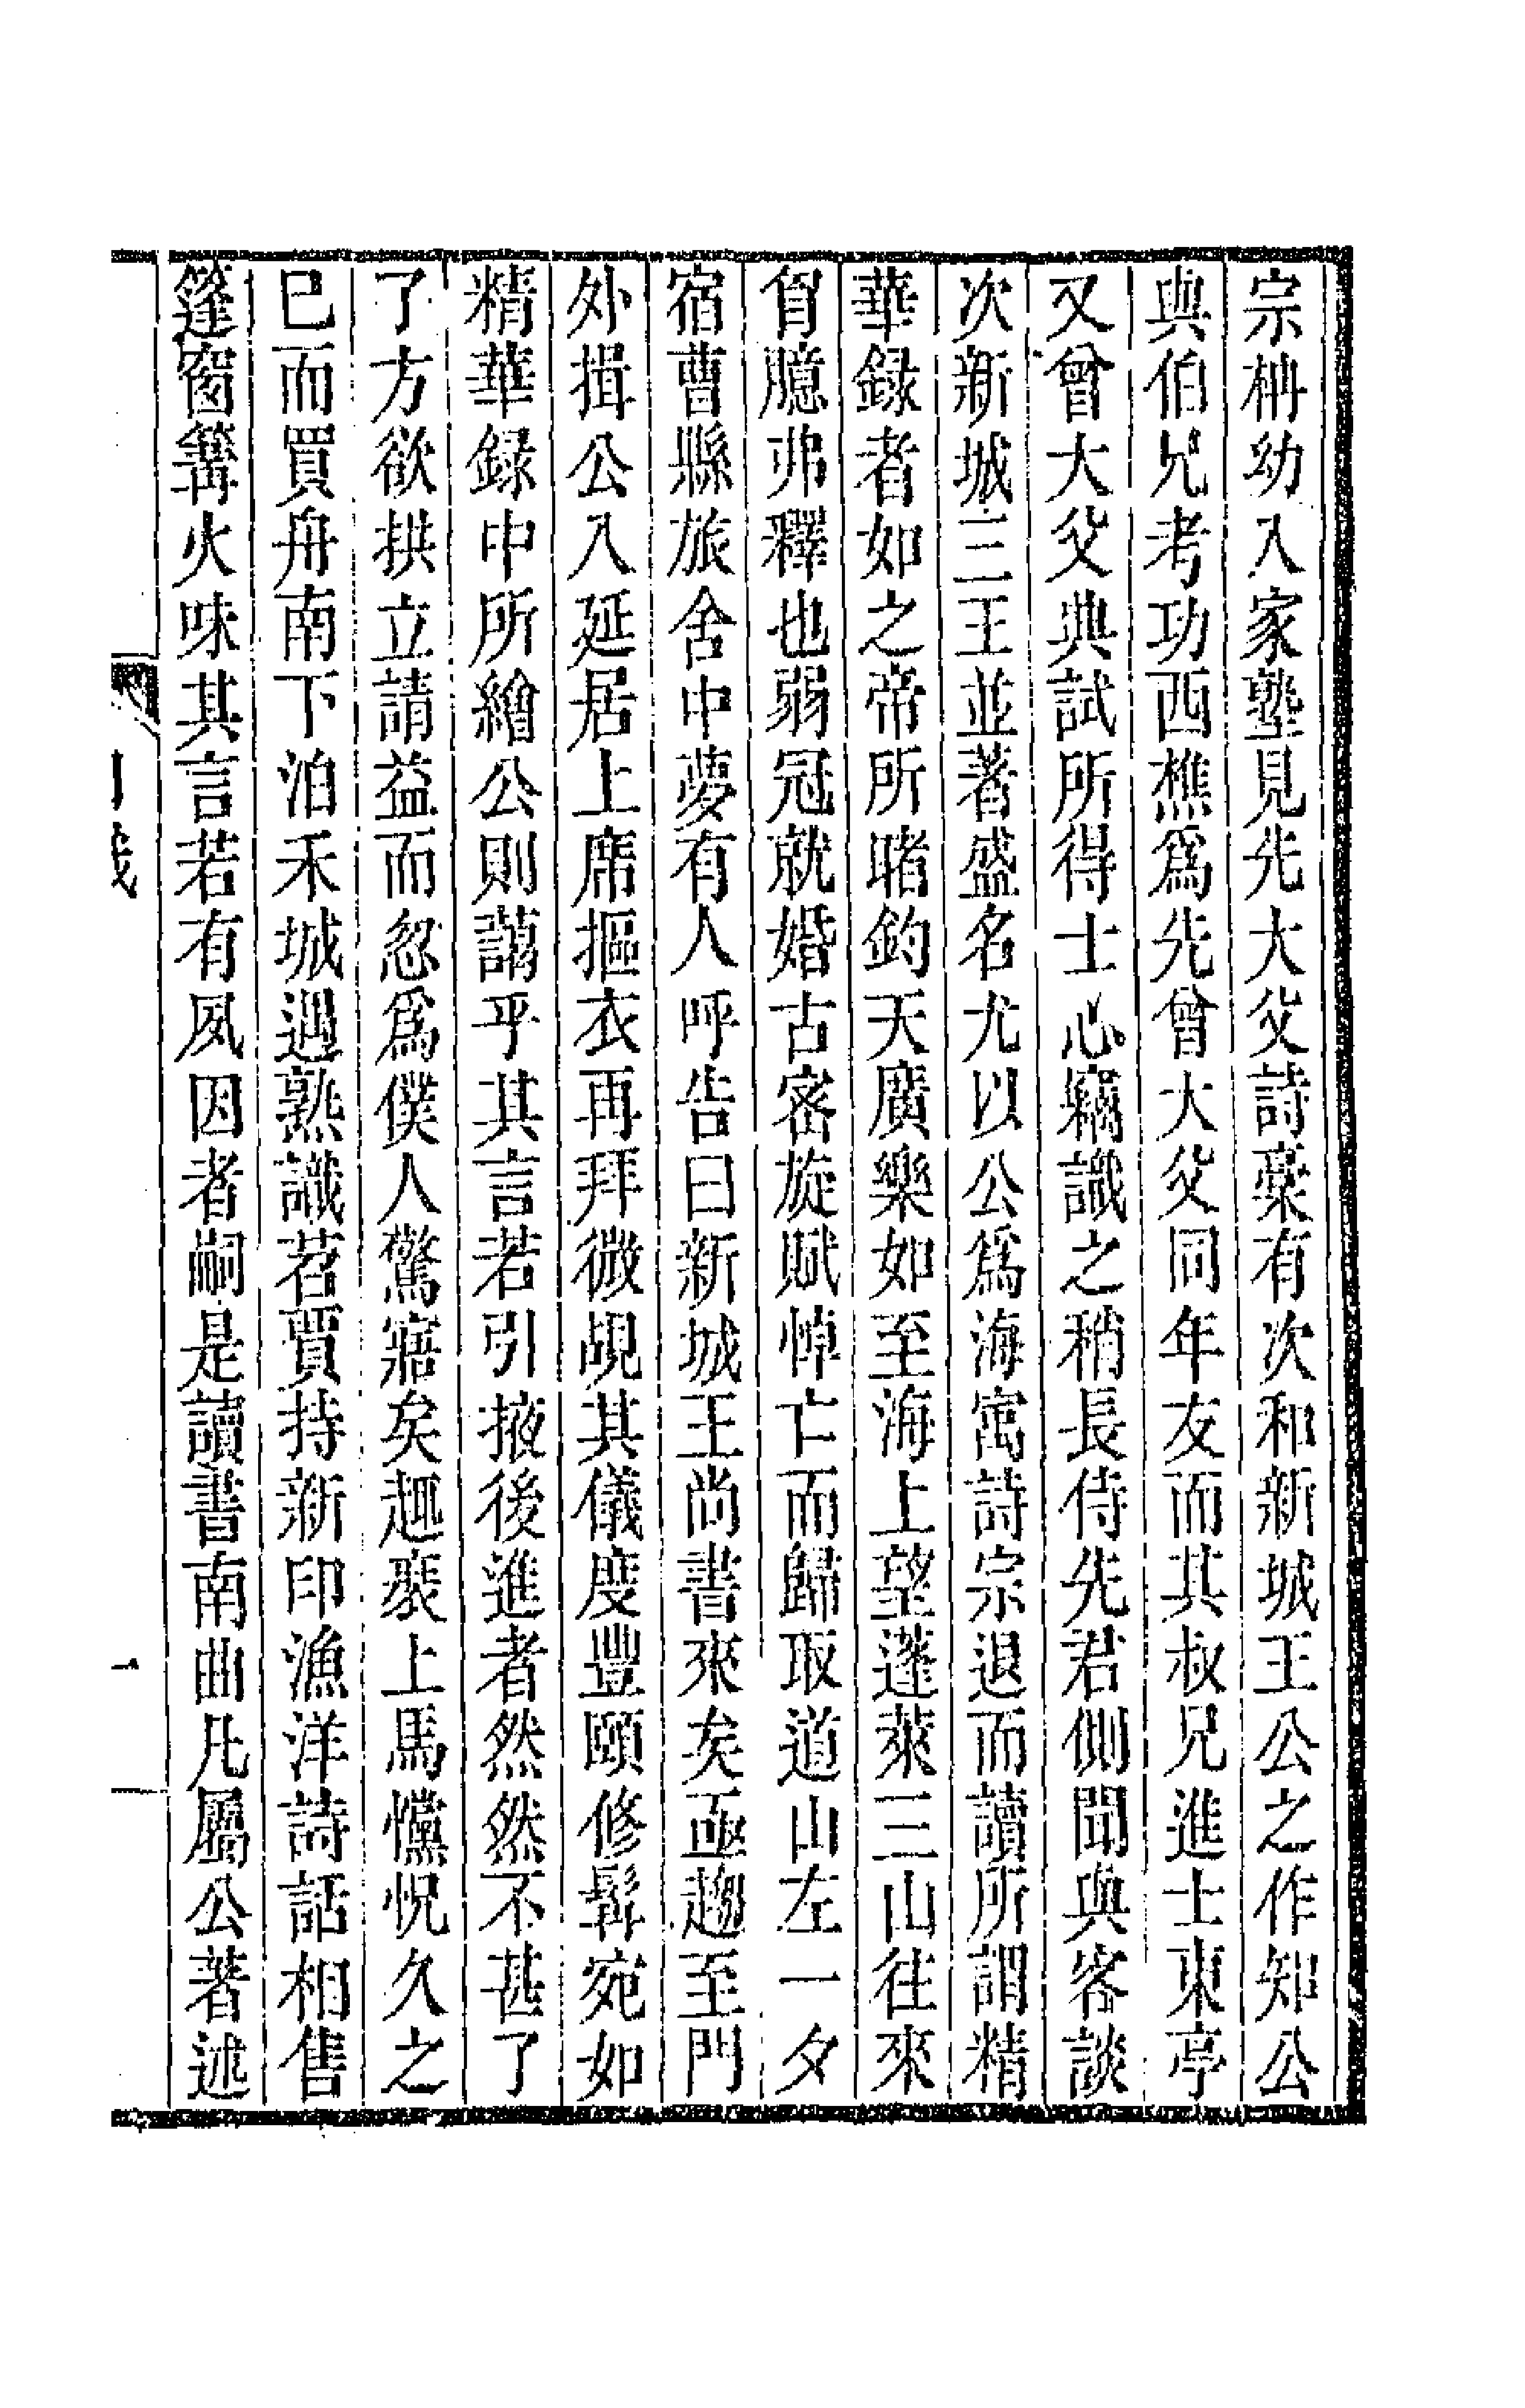 宗柟幼入家塾見先大父詩稾有次和新城王公之作知公
與伯兄考功西樵爲先曾大父同年友而其叔兄進士東亭
又曾大父典試所得士心竊識之稍長侍先君側聞與客談
次新城三王並著盛名尤以公爲海寓詩宗退而讀所謂精
華録者如之帝所睹鈞天廣樂如至海上望蓬萊三山往來
胷臆弗釋也弱冠就婚古密旋賦悼亡而歸取道山左一夕
宿曹縣旅舍中夢有人呼告曰新城王尚書來矣亟趨至門
外揖公入延居上席摳衣再拜微覘其儀度豐頤修髯宛如
精華録中所繪公則藹乎其言若引掖後進者然然不甚了
了方欲拱立請益而忽爲僕人驚寤矣趣裝上馬戃怳久之
已而買舟南下泊禾城遇熟識苕賈持新印漁洋詩話相售
篷窗篝火味其言若有夙因者嗣是讀書南曲凡屬公著述
一